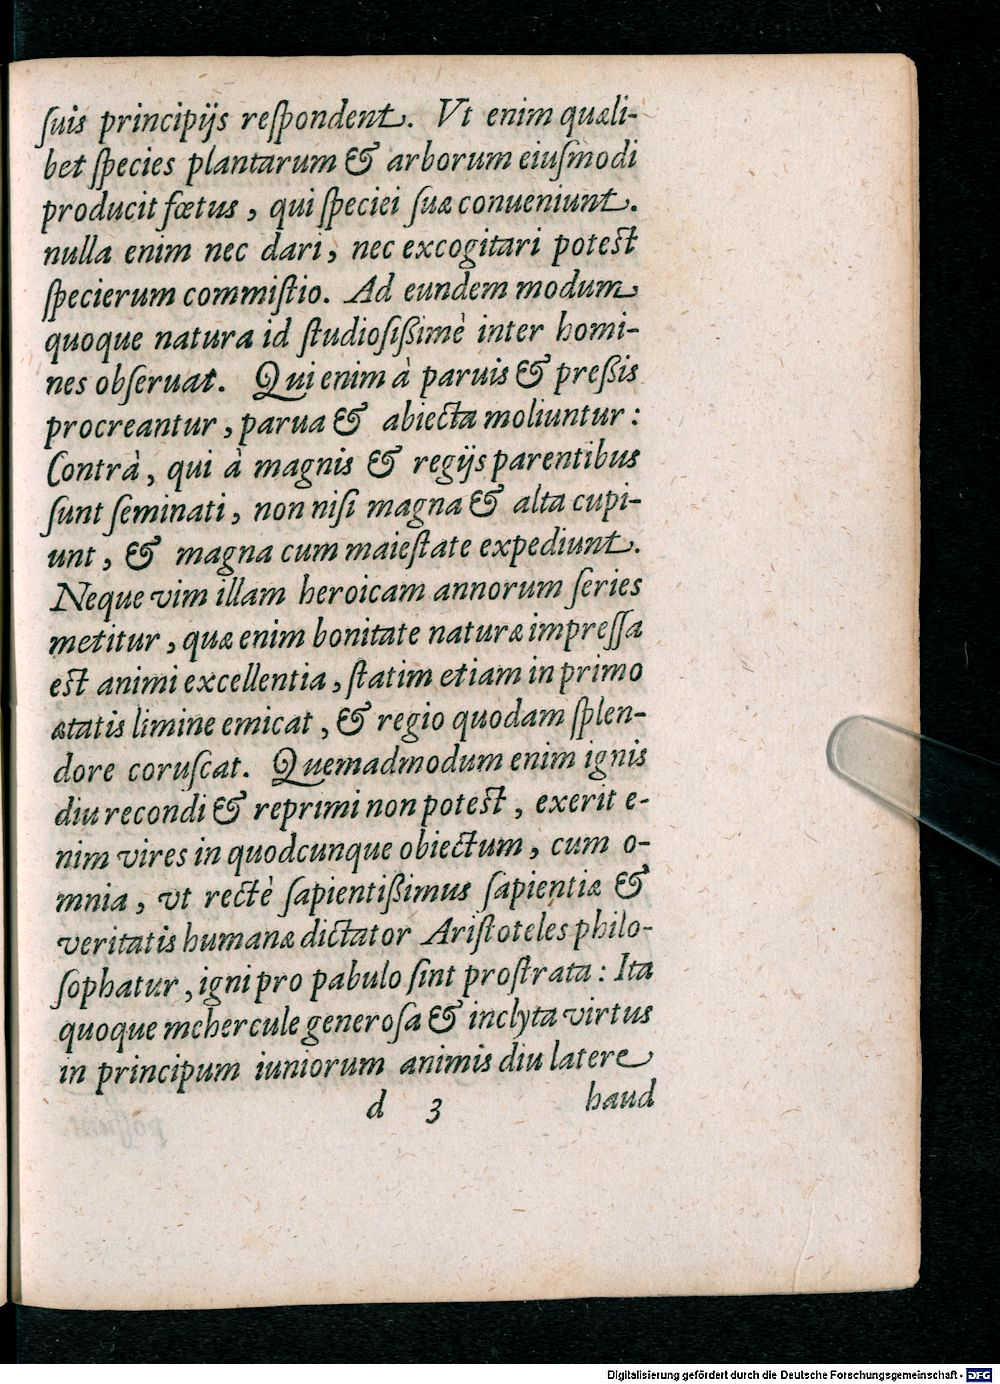 ſuis principijs reſpondent. Vt enim quæli-
bet ſpecies plantarum & arborum eiuſmodi
producit fœtus, qui ſpeciei ſuæ conueniunt.
nulla enim nec dari, nec excogitari poteſt
ſpecierum commiſtio. Ad eundem modum
quoque natura id ſtudioſißimè inter homi-
nes obſeruat. Qui enim à paruis & preßis
procreantur, parua & abiecta moliuntur:
Contrà, qui à magnis & regijs parentibus
ſunt ſeminati, non niſi magna & alta cupi-
unt, & magna cum maieſtate expediunt.
Neque vim illam heroicam annorum ſeries
metitur, quæ enim bonitate naturæ impreſſa
eſt animi excellentia, ſtatim etiam in primo
ætatis limine emicat, & regio quodam ſplen-
dore coruſcat. Quemadmodum enim ignis
diu recondi & reprimi non poteſt, exerit e-
nim vires in quodcunque obiectum, cum o-
mnia, vt rectè ſapientißimus ſapientiæ &
veritatis humanæ dictator Ariſtoteles philo-
ſophatur, igni pro pabulo ſint proſtrata: Ita
quoque mehercule generoſa & inclyta virtus
in principum iuniorum animis diu latere
d 3 haud
Digitalisierung gefördert durch die Deutsche Forschungsgemeinschaft - DFG